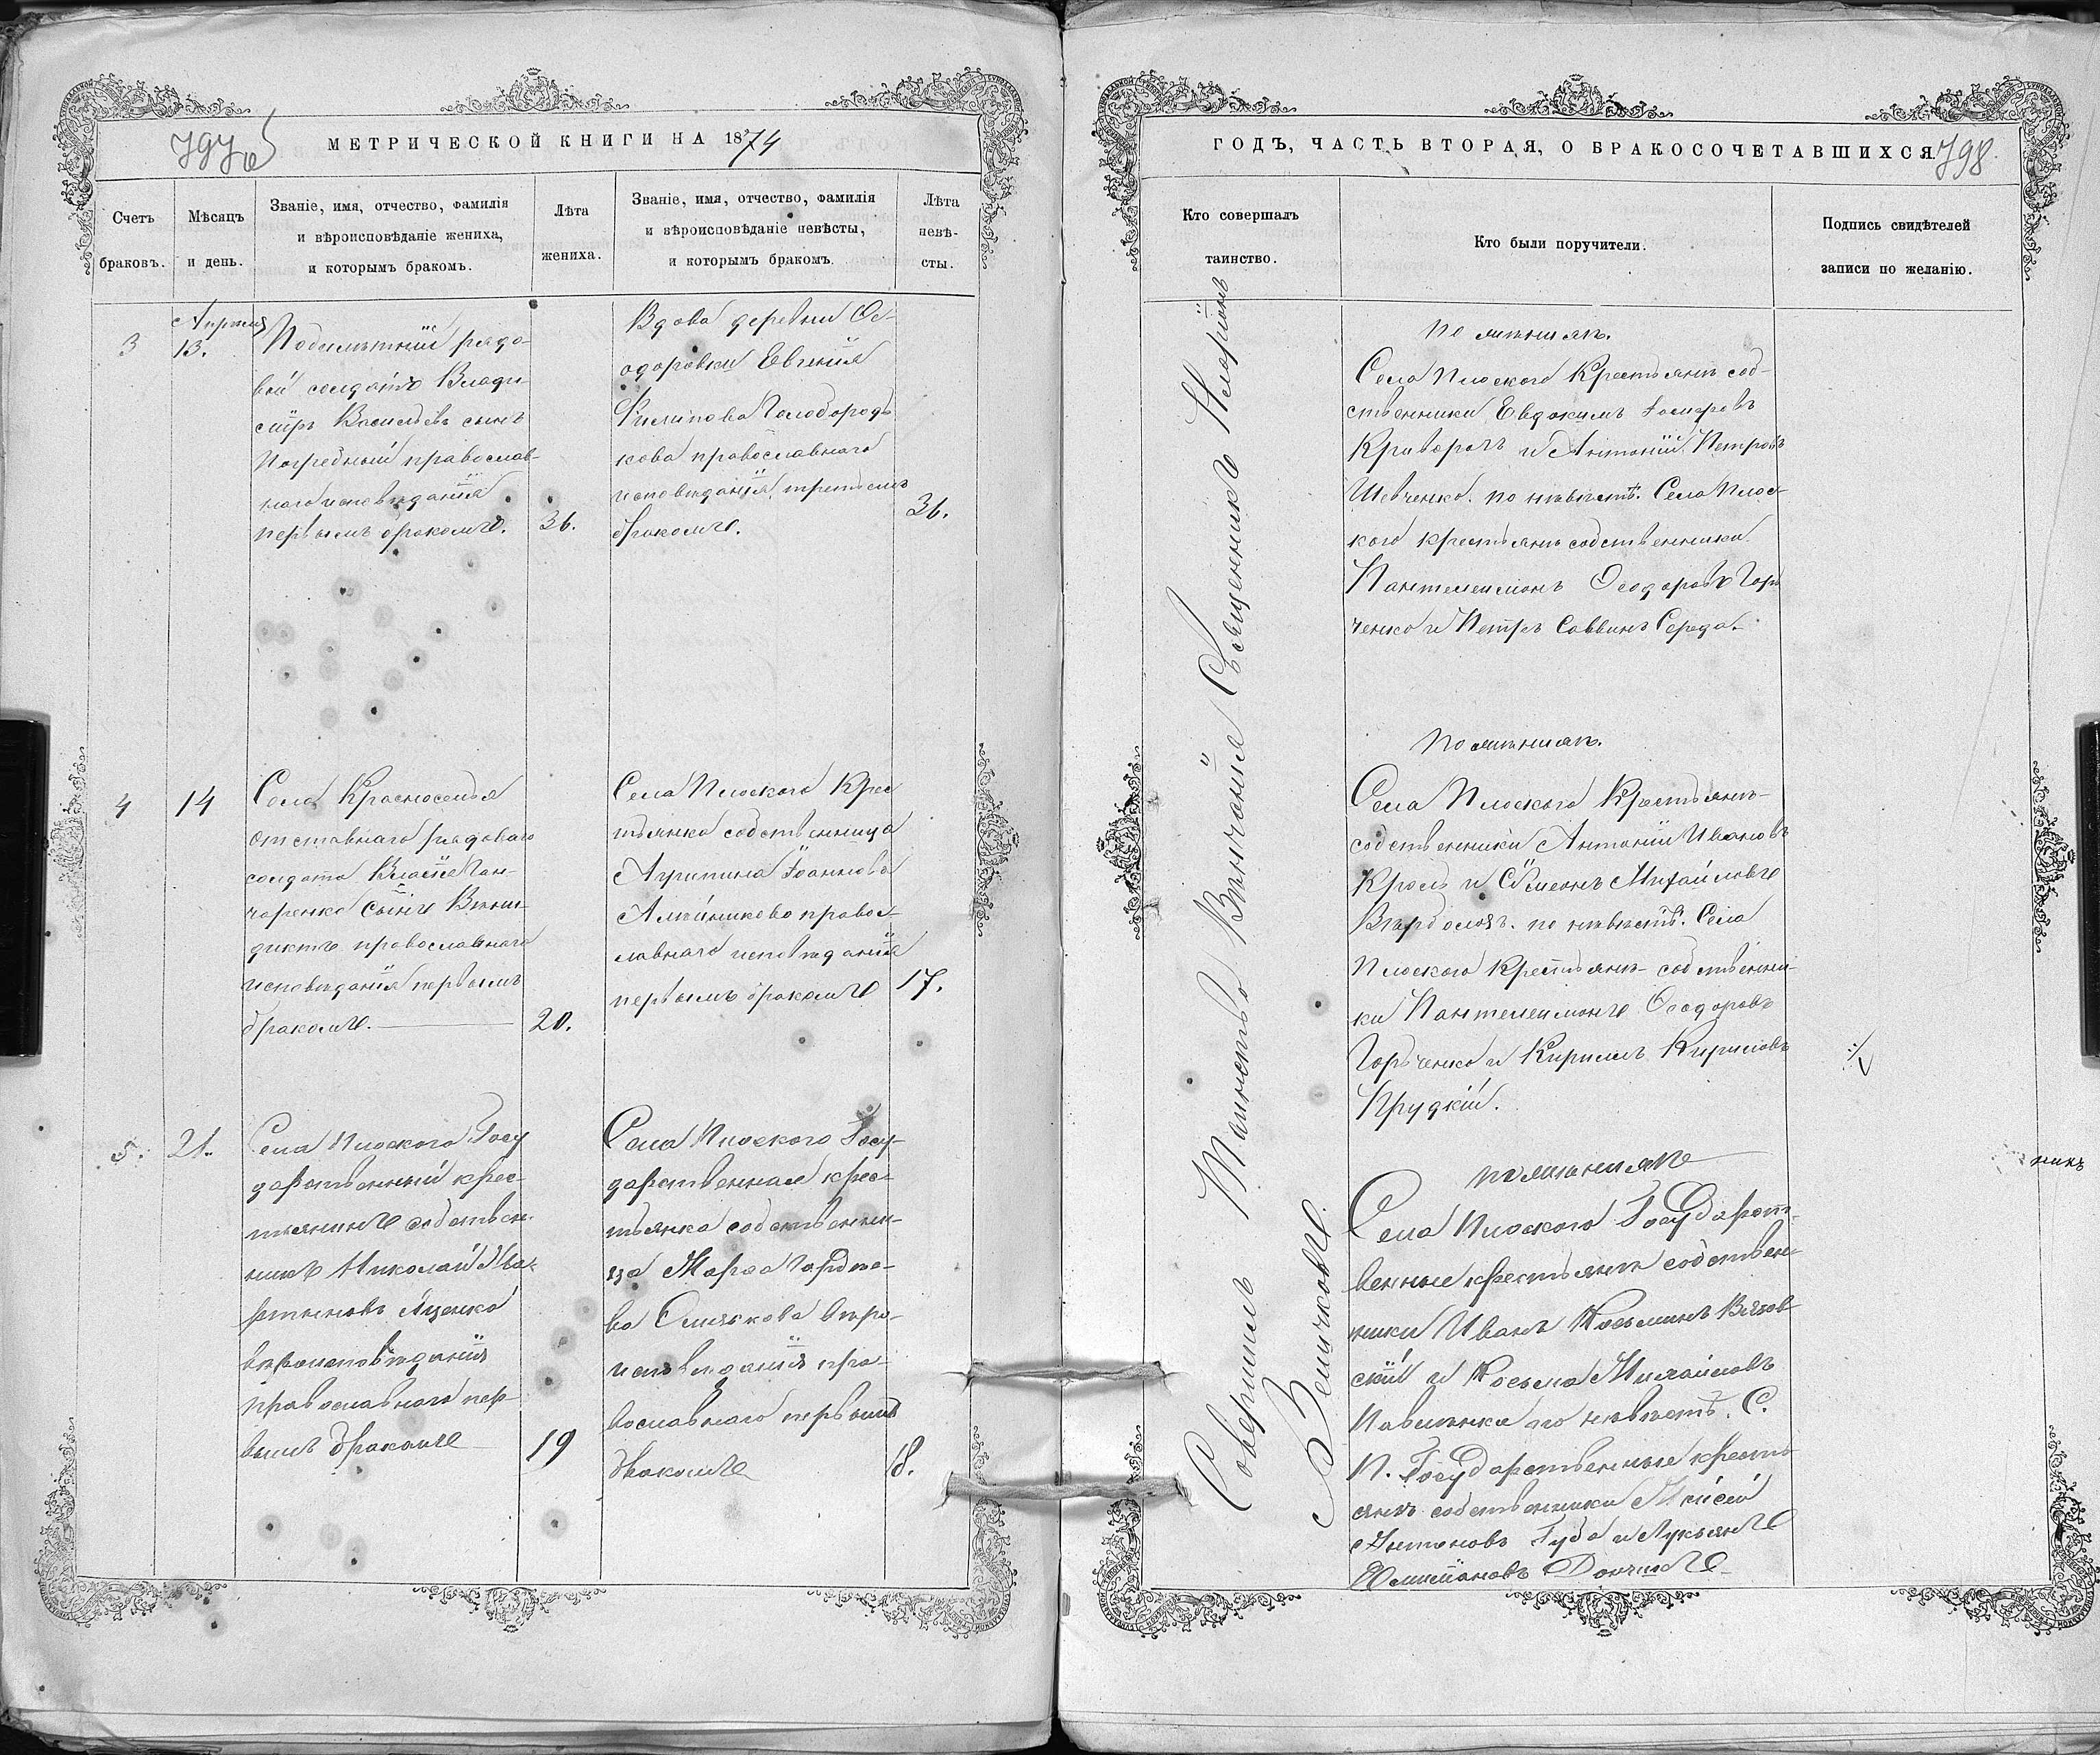 797
МЕТРИЧЕСКОЙ КНИГИ НА 1874
Счетъ браковъ.
Мѣсяцъ и день.
Званіе, имя, отчество, фамилія
и вѣроисповѣданіе жениха,
и которымъ бракомъ.
Лѣта жениха.
Званіе, имя, отчество, фамилія
и вѣроисповѣданіе невѣсты,
и которымъ бракомъ.
Лѣта
невѣ-
сты.
3
Апрѣля
13.
рядо-
вый солдатъ Влади
міръ Васильевъ сынъ
православ-
наго исповѣданія
первымъ бракомъ.
36.
Вдова деревни Ѳе-
одоровки Евгенія
Филипова Голобородь
кова православнаго
исповѣданія третьимъ
бракомъ.
36.
4
14
Села Красноселья
отставнаго рядоваго
солдата Власія Ган-
чаренка сынъ Вени-
диктъ православнаго
исповѣданія первымъ
бракомъ.
20.
Села Плоского Крес
тьянка собственница
Агрипина Іоаннова
правос-
лавнаго исповѣданія
первымъ бракомъ
17.
5.
21.
Села Плоского Госу
дарственный крес-
тьянинъ собствен-
никъ Николай Ма-
ртыновъ Яценко
вѣроисповѣданія
православнаго пер-
вымъ бракомъ
19
Села Плоского Госу-
дарственная крес-
тьянка собственни-
ца Марѳа Гордѣе-
ва вѣро-
исповѣданія пра-
вославнаго первымъ
бракомъ
18.
ГОДЪ, ЧАСТЬ ВТОРАЯ, О БРАКОСОЧЕТАВШИХСЯ.
798.
Кто совершалъ
таинство.
Кто были поручители.
Подпись свидѣтелей
записи по желанію.
Совершилъ Таинство Вѣнчанія Священникъ Иларіонъ
Величковъ.
По женихѣ.
Села Плоского Крестьяне соб-
ственники Евдокимъ
Криворогъ и Антоній Петровъ
Шевченко. по невѣстѣ. Села Плос-
кого крестьяне собственники
Пантелеимонъ Ѳеодоровъ Горь
ченко и Петръ Саввинъ Середа.
По женихѣ.
Села Плоского Крестьяне-
собственники Антоній Ивановъ
Кроль и Симеонъ Михайловъ
Верболозъ. по невѣстѣ. Села
Плоского Крестьяне собственни-
ки Пантелеимонъ Ѳеодоровъ
Горьченко и Кирилъ Кириловъ
Прудкій.
по женихѣ
Села Плоского Государст-
венные крестьяне собствен
ники Иванъ Косьминъ
скій и Косьма Михайловъ
по невѣстѣ. С.
П. Государственные кресть
яне собственники Моисей
Антоновъ Губа и Лукьянъ
никъ